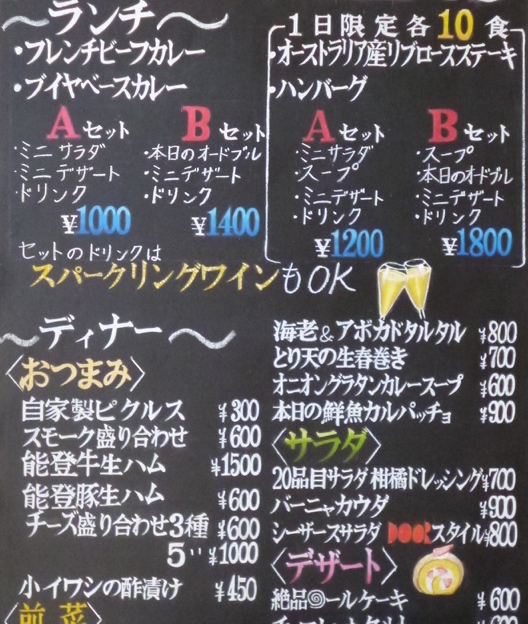 ～ランチ～
・フレンチビーフカレー
・ブイヤベースカレー
Aセット
・ミニサラダ
・ミニデザート
・ドリンク
¥1000
Bセット
・本日のオードブル
・ミニデザート
・ドリンク
¥1400
1日限定各10食
・オーストラリア産リブロースステーキ
・ハンバーグ
Aセット
・ミニサラダ
・スープ
・ミニデザート
・ドリンク
¥1200
Bセット
・スープ
・本日のオードブル
・ミニデザート
・ドリンク
¥1800
セットのドリンクは
スパークリングワインもOK
～ディナー～
〈おつまみ〉
自家製ピクルス ¥300
スモーク盛り合わせ ¥600
能登牛生ハム ¥1500
能登豚生ハム ¥600
チーズ盛り合わせ3種 ¥600
5〃 ¥1000
小イワシの酢漬け ¥450
〈前菜〉
海老&アボカドタルタル ¥800
とり天の生春巻き ¥700
オニオングラタンカレースープ ¥600
本日の鮮魚カルパッチョ ¥900
〈サラダ〉
20品目サラダ 柑橘ドレッシング ¥700
バーニャカウダ ¥900
シーザースサラダ DOORスタイル ¥800
〈デザート〉
絶品ロールケーキ ¥600